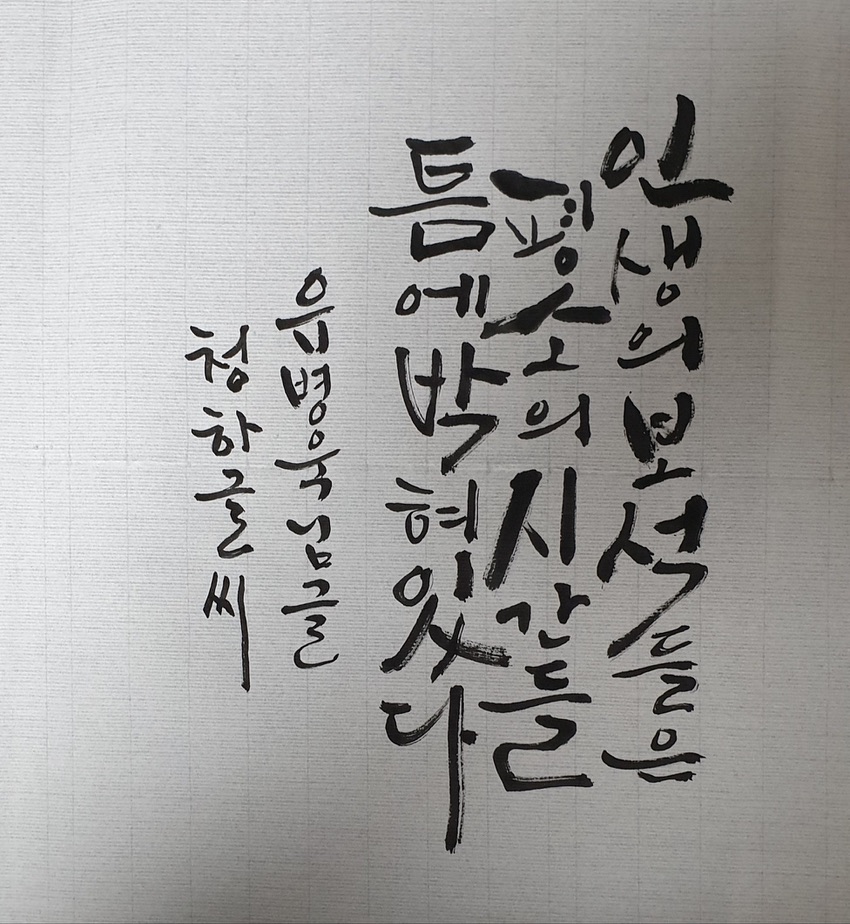 인생의 보석들은
평소의 시간들
틈에 박혀있다
윤병욱님 글
청하글씨